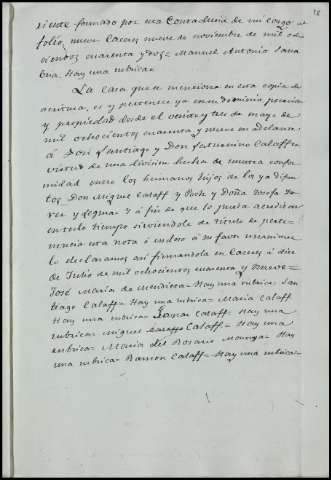 siente formado por esta Contaduria de mi cargo al
folio nueve Caceres nueve de noviembre de mil ocho
cientos cuarenta y dos = Manuel Antonio Sana
bria. Hay una rubrica =
La Casa que se menciona en esta copia de
escritura, es y pertenece ya en su dominio posesion
y propiedad desde el veinte y tres de mayo de
mil ochocientos cuarenta y nueve en adelante
á José Santiago y Don Saturnino Calaff en
virtud de una division hecha de nuestra confor
midad entre los hermanos hijos de la ya difun
tos Don Miguel Calaff y Puch y Doña Josefa Fo
rer y Segura y á fin de que lo pueda acreditar
en todo tiempo sirviendole de titulo de perte
nencia esta nota é endoso á su favor unanimes
lo declaramos asi firmandola en Caceres á diez
de Julio de mil ochocientos cuarenta y nueve =
José Maria de Mendieta = Hay una rubrica = San
tiago Calaff = Hay una rubrica = Maria Calaff
Hay una rubrica = Calaff = Hay una
rubrica = Miguel Calaff = Hay una
rubrica = Maria del Rosario = Hay
una rubrica = Ramon Calaff = Hay una rubrica =